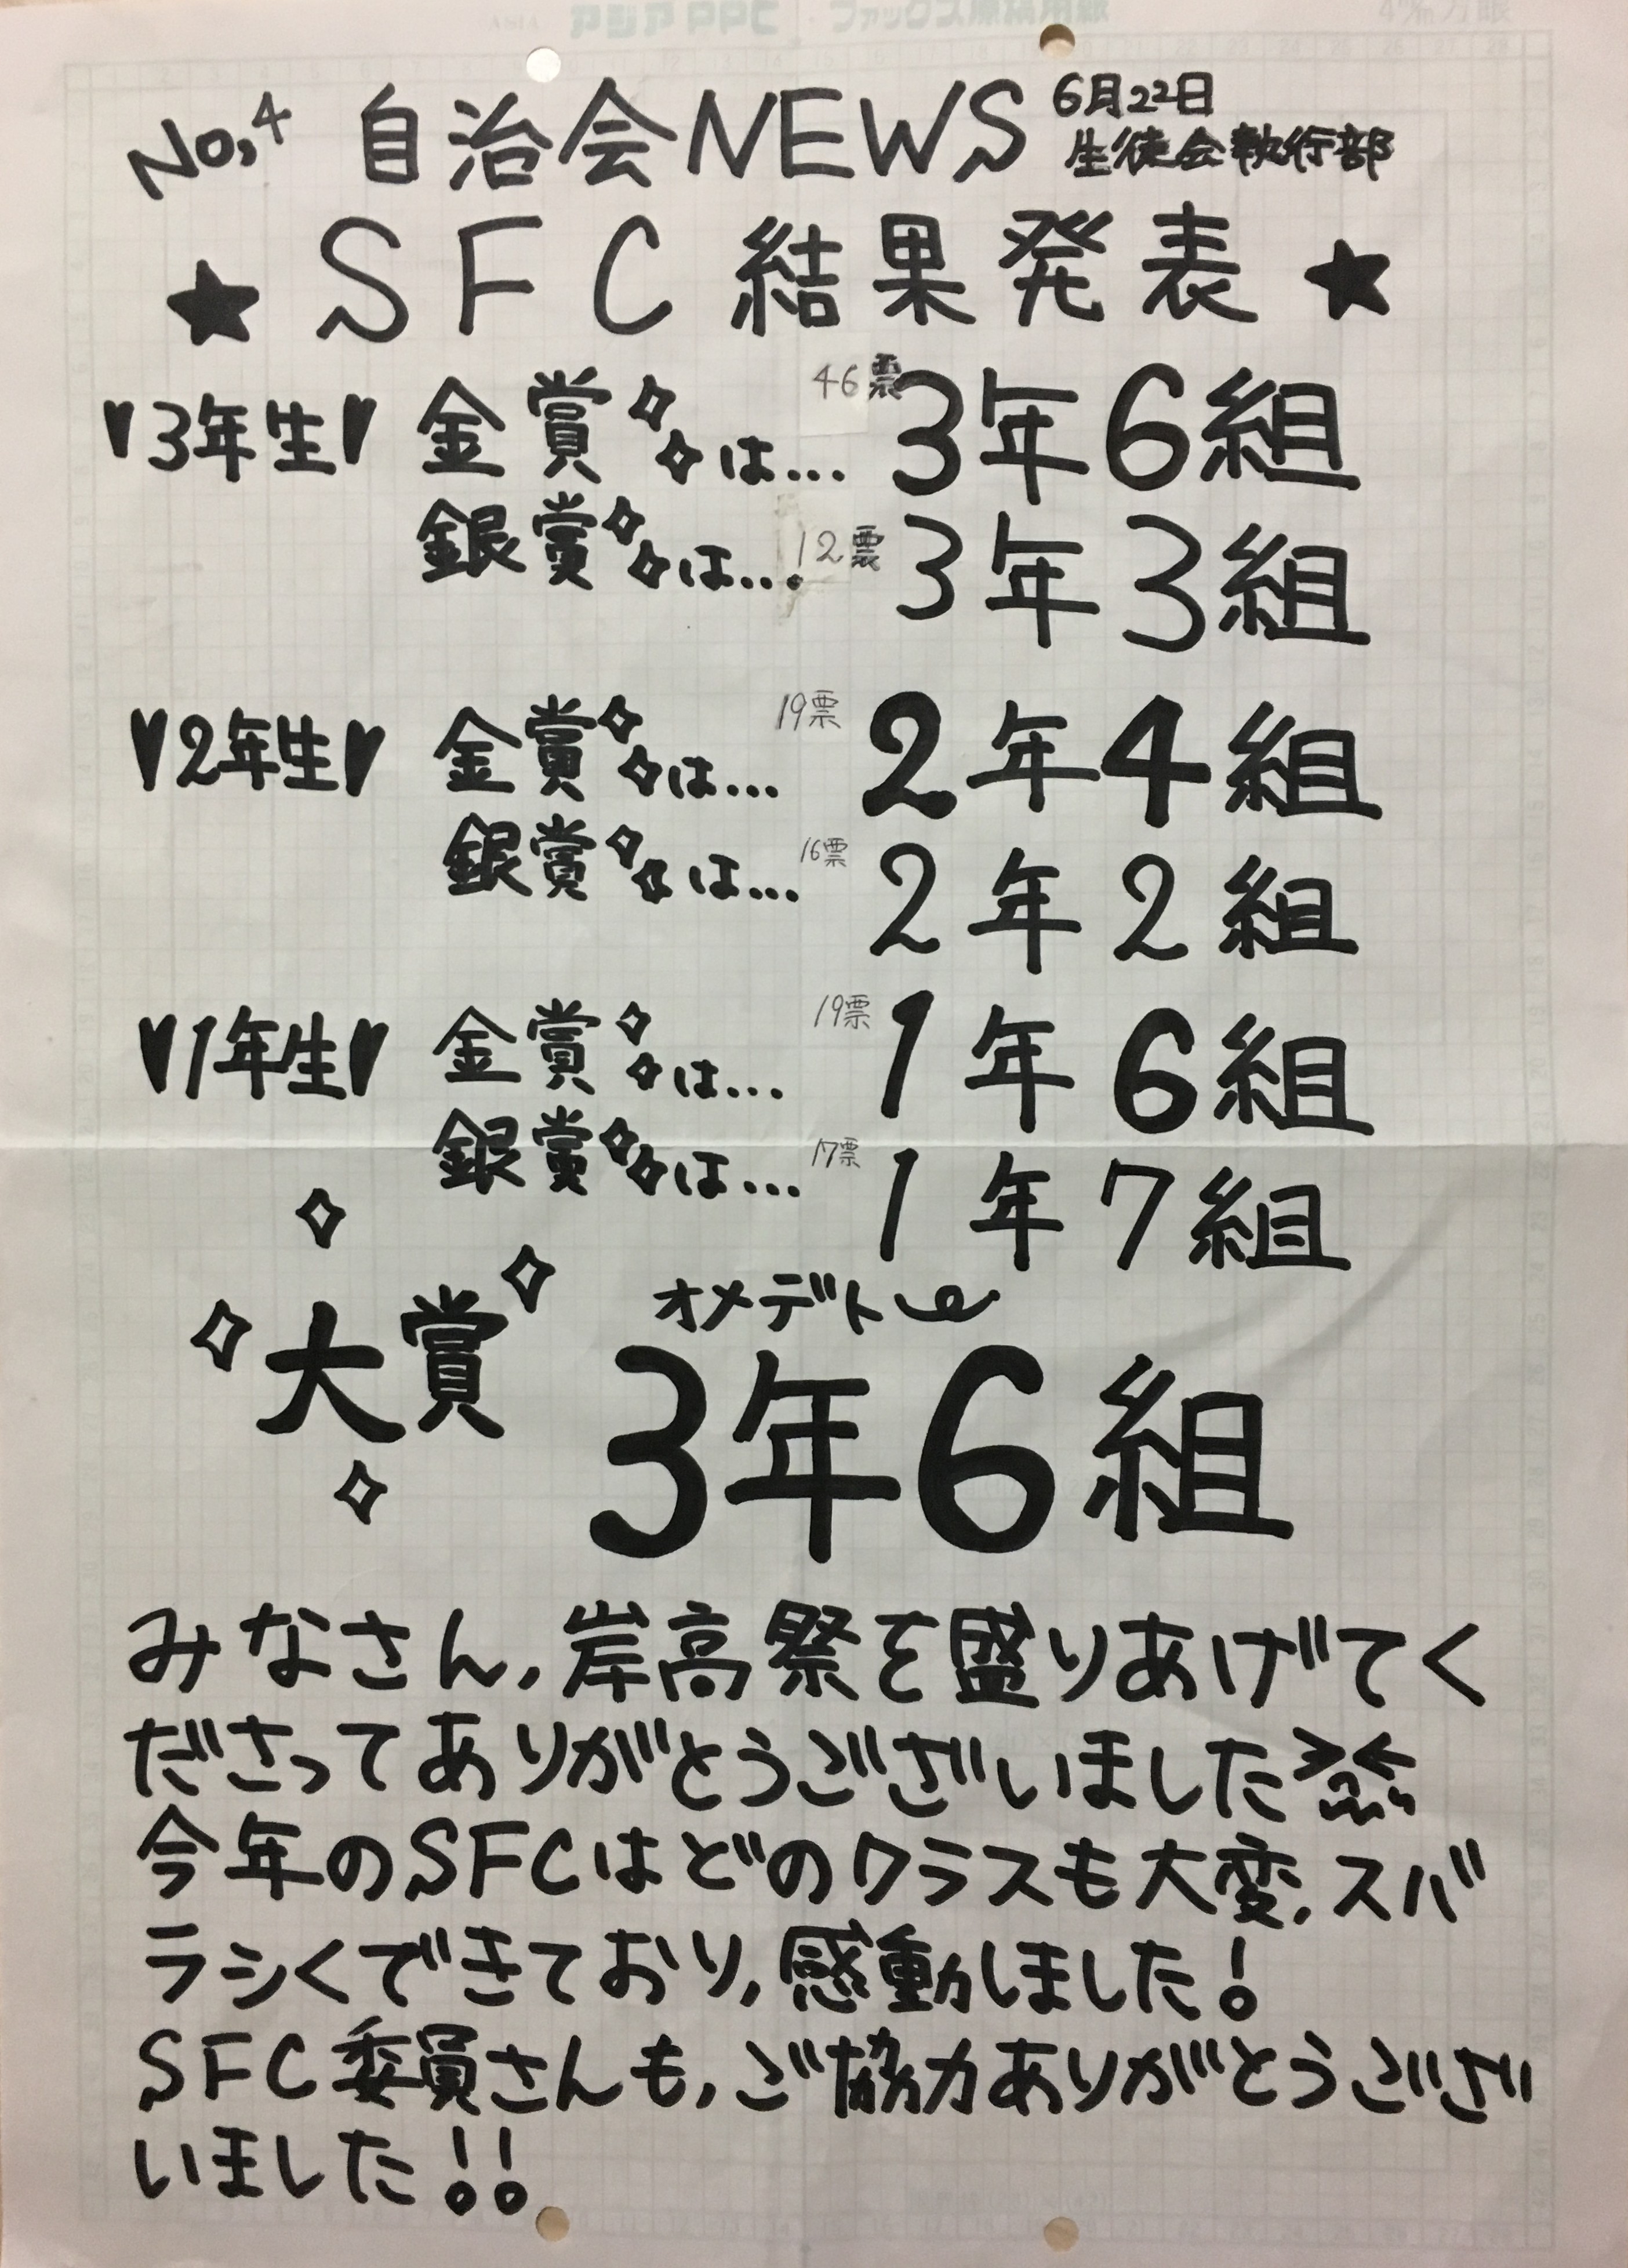 ASIA アジア PPC・ファックス原稿用紙 4㎜方眼
No,4 自治会NEWS 6月22日
生徒会執行部
★ SFC 結果発表 ★
♥3年生♥ 金賞は… 46票 3年6組
銀賞は… 12票 3年3組
♥2年生♥ 金賞は… 19票 2年4組
銀賞は… 16票 2年2組
♥1年生♥ 金賞は… 19票 1年6組
銀賞は… 17票 1年7組
オメデト
大賞 3年6組
みなさん,岸高祭を盛りあげてく
ださってありがとうございました
今年のSFCはどのクラスも大変,スバ
ラシくできており,感動しました!
SFC委員さんも,ご協力ありがとうござ
いました!!